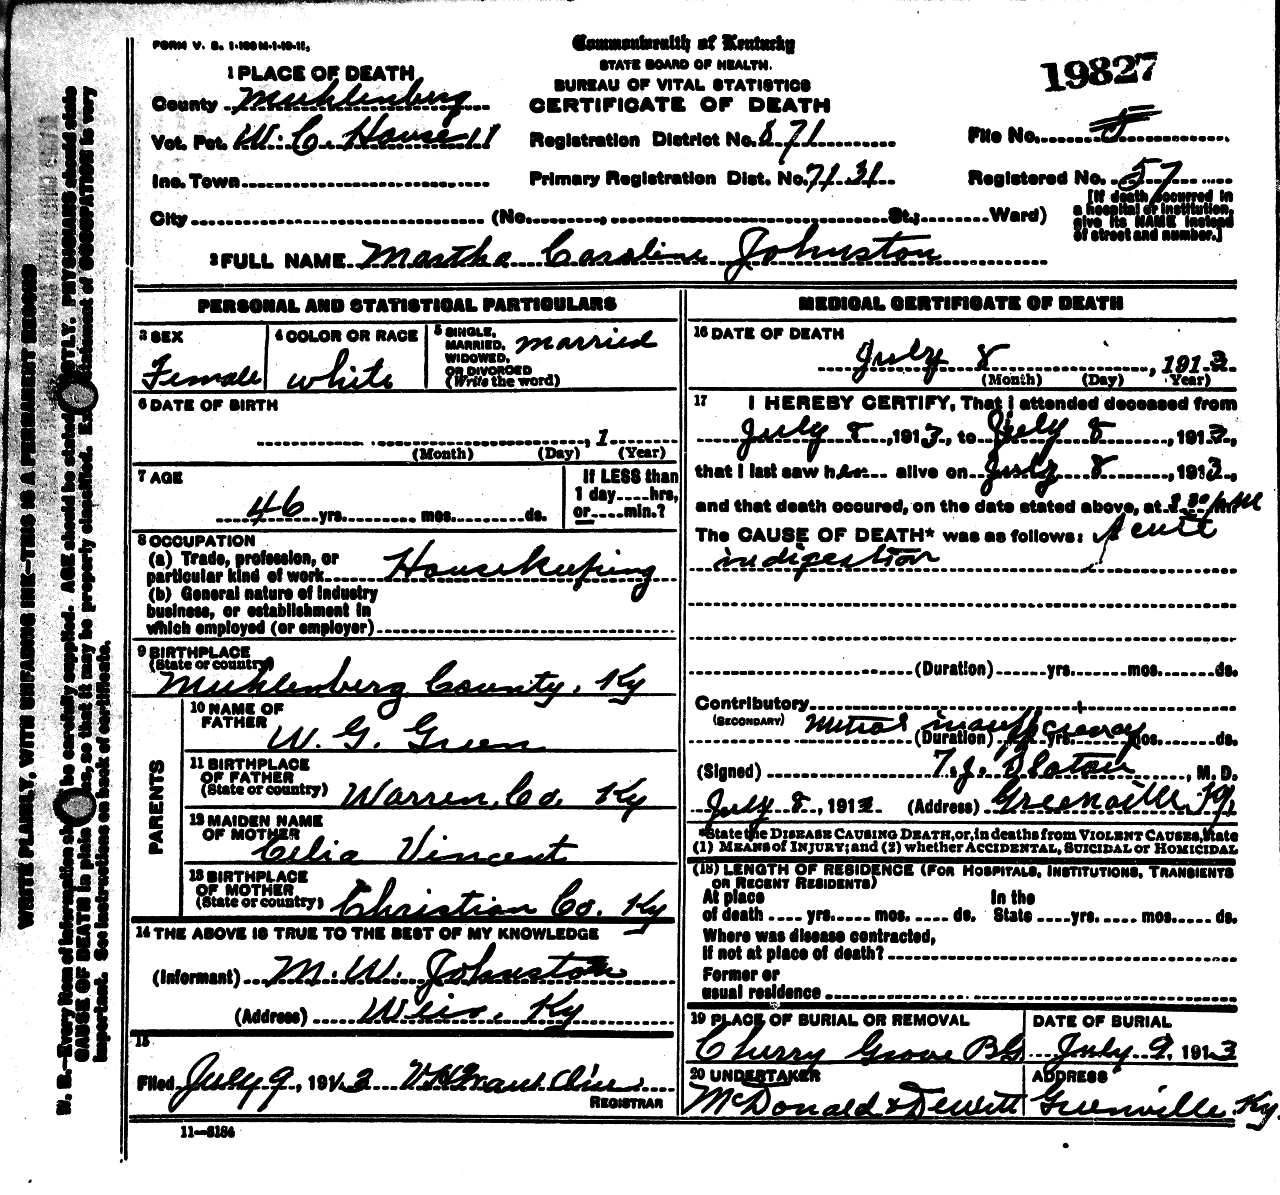 FORM V. S. 1-100 M-1-10-11,
Commonwealth of Kentucky
STATE BOARD OF HEALTH.
BUREAU OF VITAL STATISTICS
CERTIFICATE OF DEATH
19827
1 PLACE OF DEATH
County Muhlenberg
Vot. Pct. W. C. House 11
Registration District No. 871
File No.
Inc. Town
Primary Registration Dist. No. 7131
Registered No. 57
City (No. , St.; Ward)
[If death occurred in a hospital or institution, give its NAME instead of street and number.]
2 FULL NAME Martha Caroline Johnston
PERSONAL AND STATISTICAL PARTICULARS
3 SEX
Female
4 COLOR OR RACE
white
5 SINGLE, MARRIED, WIDOWED, OR DIVORCED (Write the word)
married
6 DATE OF BIRTH
, 1
(Month) (Day) (Year)
7 AGE
46 yrs. mos. ds.
If LESS than 1 day hrs. or min.?
8 OCCUPATION
(a) Trade, profession, or particular kind of work Housekeeping
(b) General nature of industry business, or establishment in which employed (or employer)
9 BIRTHPLACE
(State or country)
Muhlenberg County, Ky
PARENTS
10 NAME OF FATHER
W. G. Green
11 BIRTHPLACE OF FATHER
(State or country) Warren, Co. Ky
12 MAIDEN NAME OF MOTHER
Celia Vincent
13 BIRTHPLACE OF MOTHER
(State or country) Christian Co. Ky
14 THE ABOVE IS TRUE TO THE BEST OF MY KNOWLEDGE
(Informant) M. W. Johnston
(Address) Weir, Ky
15
Filed July 9, 191
REGISTRAR
11—8184
MEDICAL CERTIFICATE OF DEATH
16 DATE OF DEATH
July 8, 1913
(Month) (Day) (Year)
17 I HEREBY CERTIFY, That I attended deceased from
July 8, 1913, to July 8, 1913,
that I last saw her alive on July 8, 1913,
and that death occured, on the date stated above, at
The CAUSE OF DEATH* was as follows: Acute
indigestion
(Duration) yrs. mos. ds.
Contributory
(SECONDARY) Mitral insufficiency
(Duration) yrs. mos. ds.
(Signed) T. J. Slaton, M. D.
July 8, 191 (Address) Greenville, Ky.
*State the DISEASE CAUSING DEATH, or, in deaths from VIOLENT CAUSES, state
(1) MEANS OF INJURY; and (2) whether ACCIDENTAL, SUICIDAL OR HOMICIDAL
(18) LENGTH OF RESIDENCE (FOR HOSPITALS, INSTITUTIONS, TRANSIENTS OR RECENT RESIDENTS)
At place of death yrs. mos. ds. In the State yrs. mos. ds.
Where was disease contracted,
If not at place of death?
Former or
usual residence
19 PLACE OF BURIAL OR REMOVAL
Cherry Grove BG
DATE OF BURIAL
July 9, 1913
20 UNDERTAKER
McDonald & Dewitt
ADDRESS
Greenville Ky.
WRITE PLAINLY, WITH UNFADING INK—THIS IS A PERMANENT RECORD
N. B.—Every item of information should be carefully supplied. AGE should be stated EXACTLY. PHYSICIANS should state
CAUSE OF DEATH in plain terms, so that it may be properly classified. Exact statement of OCCUPATION is very
important. See instructions on back of certificate.